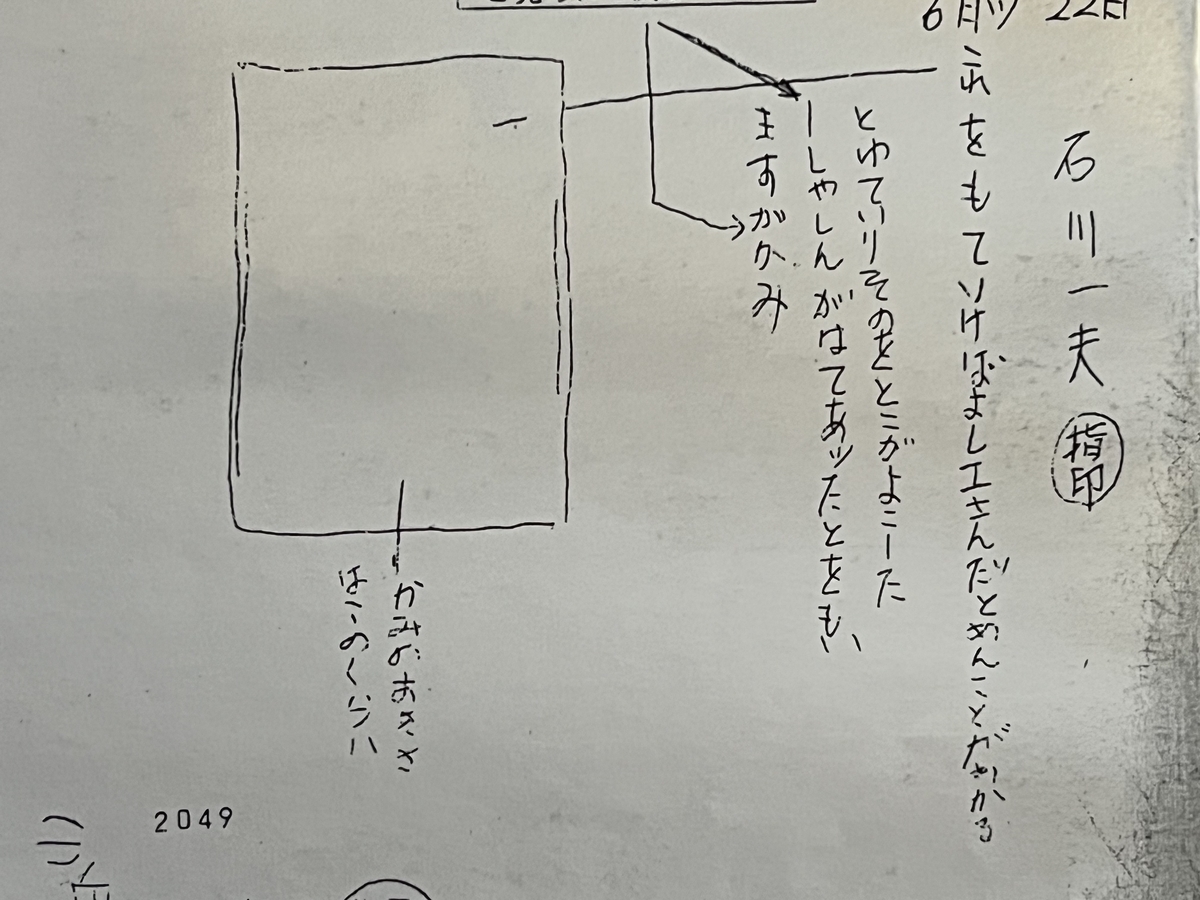 6月ツ 22日
石川一夫 指印
これをもていけばよしエさんだとゆんことがわかる
とゆていりそのをとこがよこーた
ーしゃしんがはてあッたとをもい
ますがかみ
かみのおきさ
はこのくらい
2049